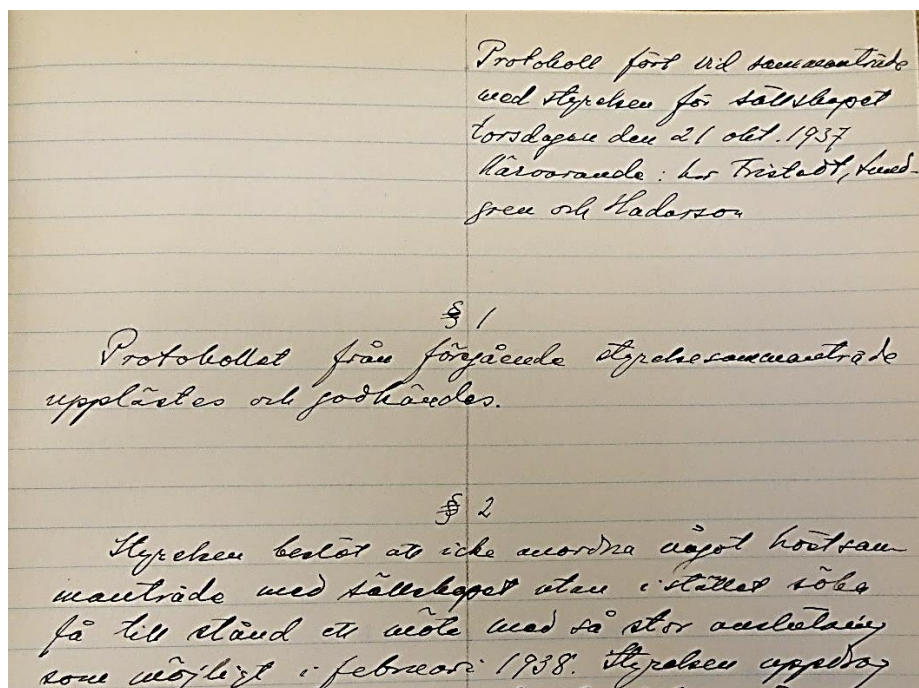 Protokoll fört vid sammanträde
med styrelsen för sällskapet
torsdagen den 21 okt. 1937
Närvarande: hrr Fristedt, Smed-
gren och Hadarson
§ 1
Protokollet från föregående styrelsesammanträde
upplästes och godkändes.
§ 2
Styrelsen beslöt att icke anordna något höstsam-
manträde med sällskapet utan i stället söka
få till stånd ett möte med så stor anslutning
som möjligt i februari 1938. Styrelsen uppdrog